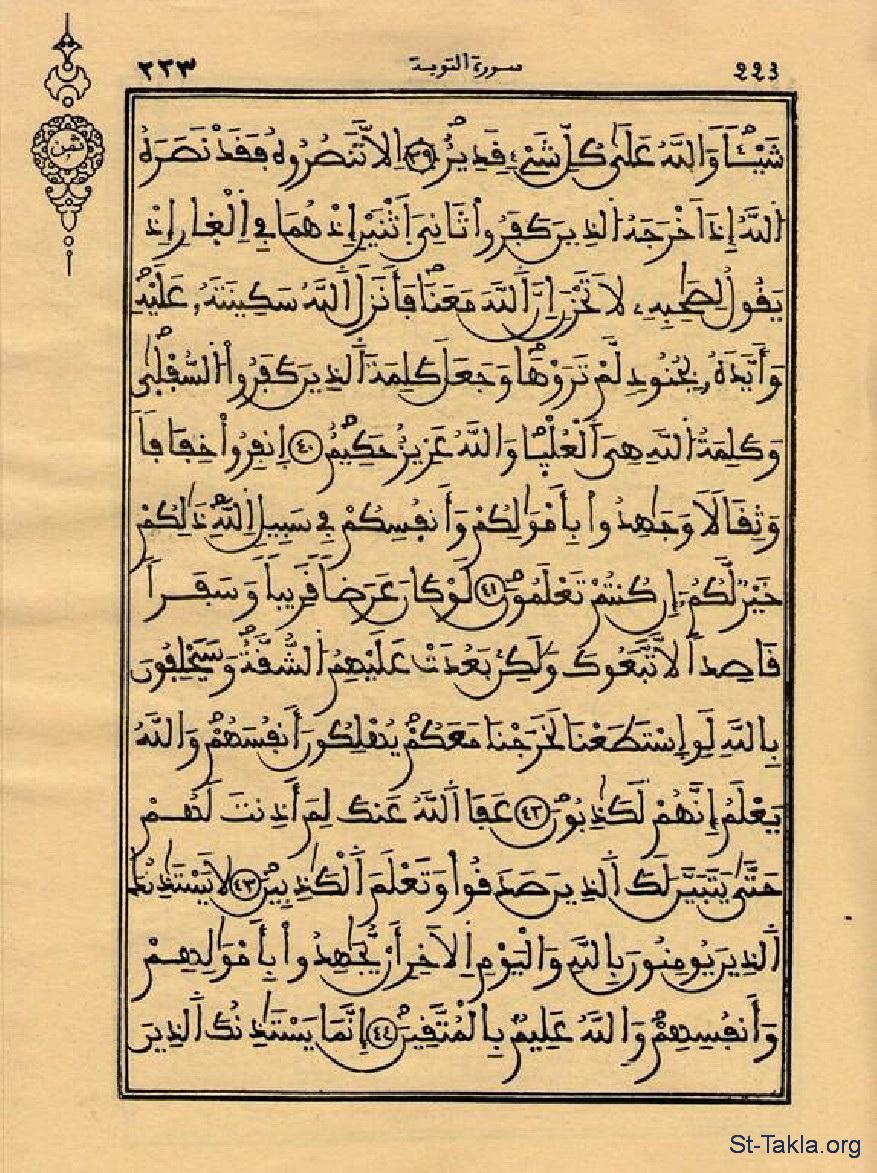 223 سورة التوبة ٢٢٣
ثمن
شَيْـًٔا وَاللَّهُ عَلَىٰ كُلِّ شَيْءٍ قَدِيرٌ ٣٩ اِلَّا تَنصُرُوهُ فَقَدْ نَصَرَهُ
اُللَّهُ إِذَ اَخْرَجَهُ اُلذِينَ كَفَرُواْ ثَانِيَ اَثْنَيْنِ إِذْ هُمَا فِي اِلْغِارِ إِذْ
يَقُولُ لِصَٰحِبِهِۦ لَا تَحْزَنِ اِنَّ اَللَّهَ مَعَنَا فَأَنزَلَ اَللَّهُ سَكِينَتَهُۥ عَلَيْهِ
وَأَيَّدَهُۥ بِجُنُودٍ لَّمْ تَرَوْهَا وَجَعَلَ كَلِمَةَ اَلذِينَ كَفَرُواْ اُلسُّفْلَىٰ
وَكَلِمَةُ اُللَّهِ هِيَ اَلْعُلْيَا وَاللَّهُ عَزِيزٌ حَكِيمٌ ٤٠ اِنفِرُواْ خِفَافاٗ
وَثِقَالاٗ وَجَٰهِدُواْ بِأَمْوَٰلِكُمْ وَأَنفُسِكُمْ فِي سَبِيلِ اِللَّهِ ذَٰلِكُمْ
خَيْرٌ لَّكُمُۥٓ إِن كُنتُمْ تَعْلَمُونَ ٤١ لَوْ كَانَ عَرَضاٗ قَرِيباٗ وَسَفَراٗ
قَاصِداٗ لَّاتَّبَعُوكَ وَلَٰكِنۢ بَعُدَتْ عَلَيْهِمُ اُلشُّقَّةُ وَسَيَحْلِفُونَ
بِاللَّهِ لَوِ اِسْتَطَعْنَا لَخَرَجْنَا مَعَكُمْ يُهْلِكُونَ أَنفُسَهُمْ وَاللَّهُ
يَعْلَمُ إِنَّهُمْ لَكَٰذِبُونَ ٤٢ عَفَا اَللَّهُ عَنكَ لِمَ أَذِنتَ لَهُمْ
حَتَّىٰ يَتَبَيَّنَ لَكَ اَلذِينَ صَدَقُواْ وَتَعْلَمَ اَلْكَٰذِبِينَ ٤٣ لَا يَسْتَٰذِنُكَ
اَلذِينَ يُومِنُونَ بِاللَّهِ وَالْيَوْمِ اِلَاخِرِ أَنْ يُّجَٰهِدُواْ بِأَمْوَٰلِهِمْ
وَأَنفُسِهِمْ وَاللَّهُ عَلِيمٌ بِالْمُتَّقِينَ ٤٤ إِنَّمَا يَسْتَٰذِنُكَ اَلذِينَ
St-Takla.org